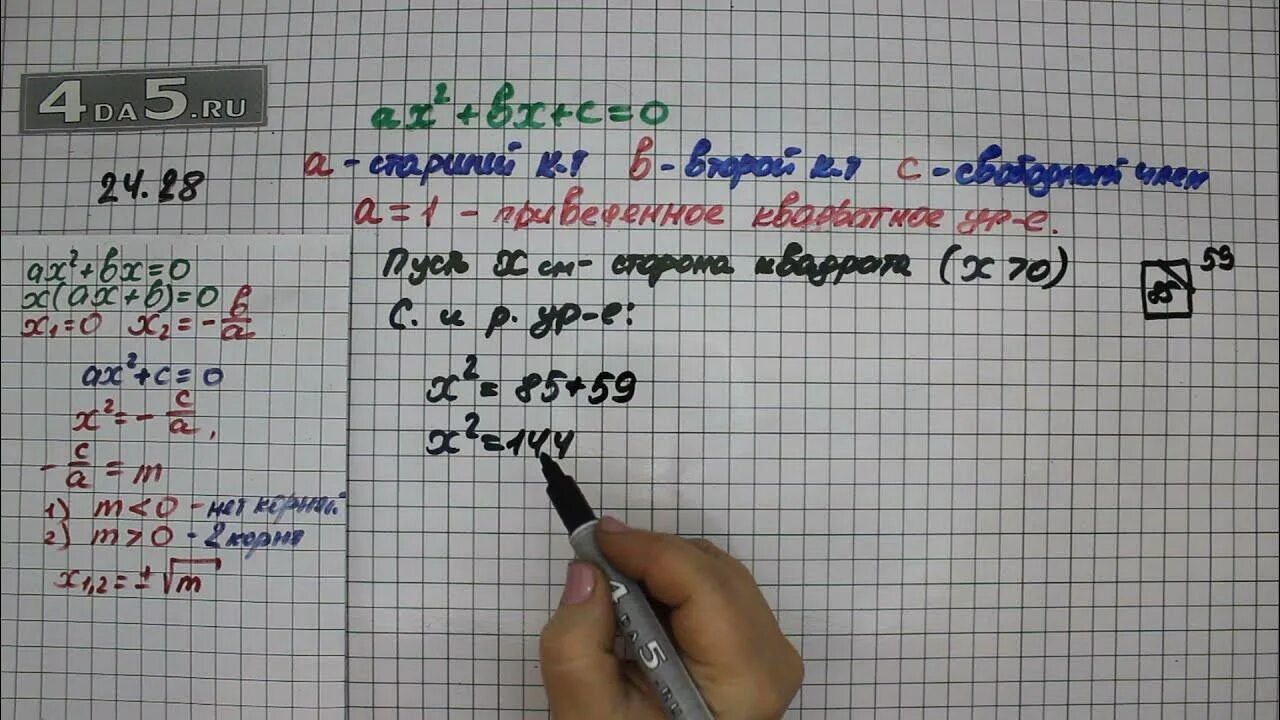 4DA5.RU
ax² + вx + c = 0
24.28
a - старший к.т в - второй к.т c - свободный член
a = 1 - приведенное квадратное ур-е.
ax² + вx = 0
x(ax + в) = 0
x₁ = 0 x₂ = - в/a
ax² + c = 0
x² = - c/a,
- c/a = m
1) m < 0 - нет корней
2) m > 0 - 2 корня
x₁,₂ = ± √m
Пусть x см - сторона квадрата (x > 0)
С. и р. ур-е:
x² = 85 + 59
x² = 144
59
85
4DA5.RU